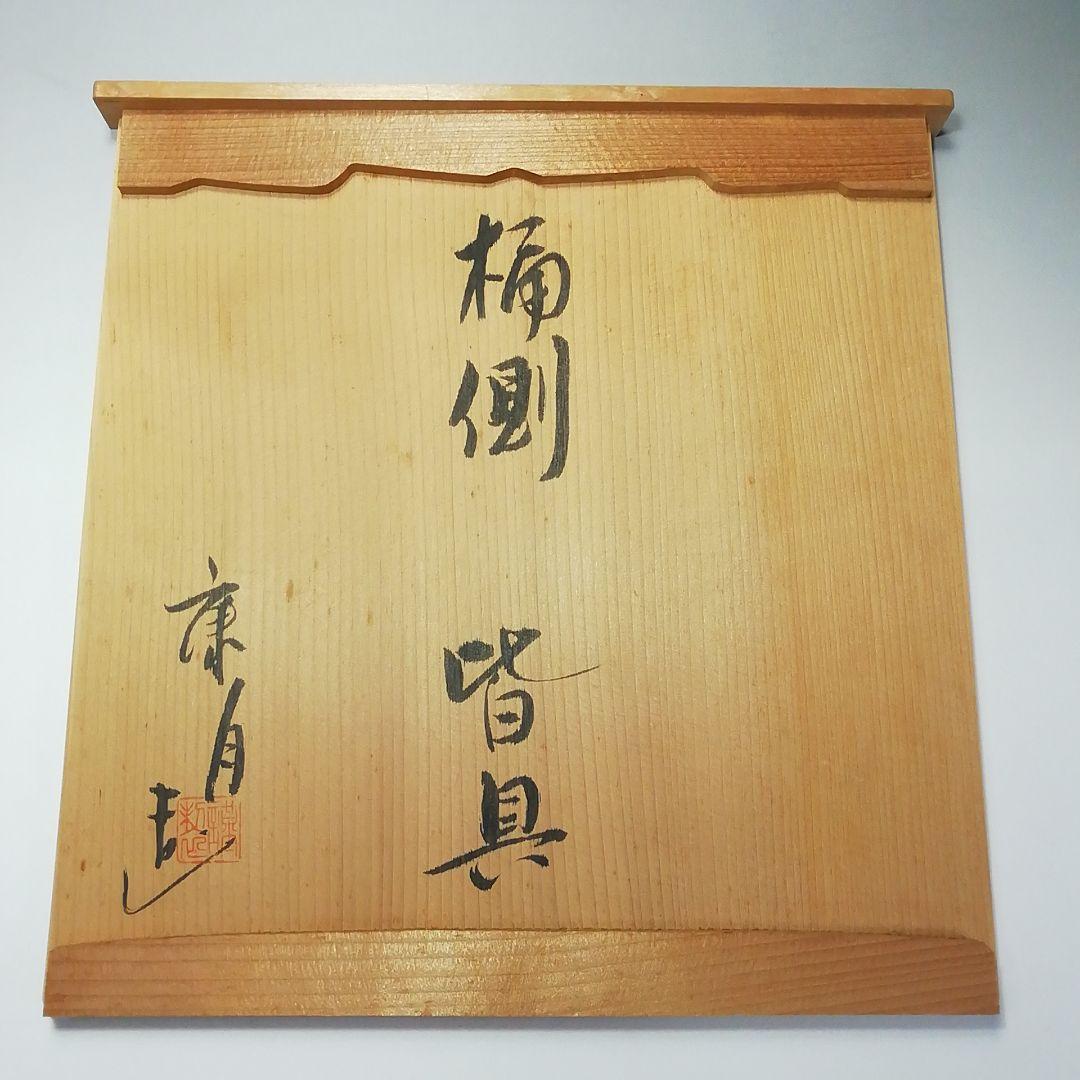 桶側 皆具
康月造